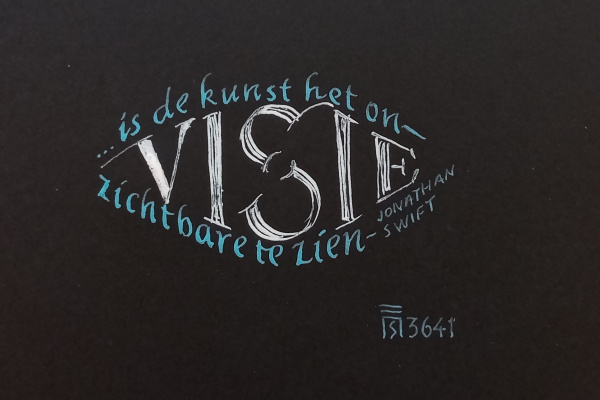 VISIE
...is de kunst het on-
zichtbare te zien-
JONATHAN
SWIFT
3641